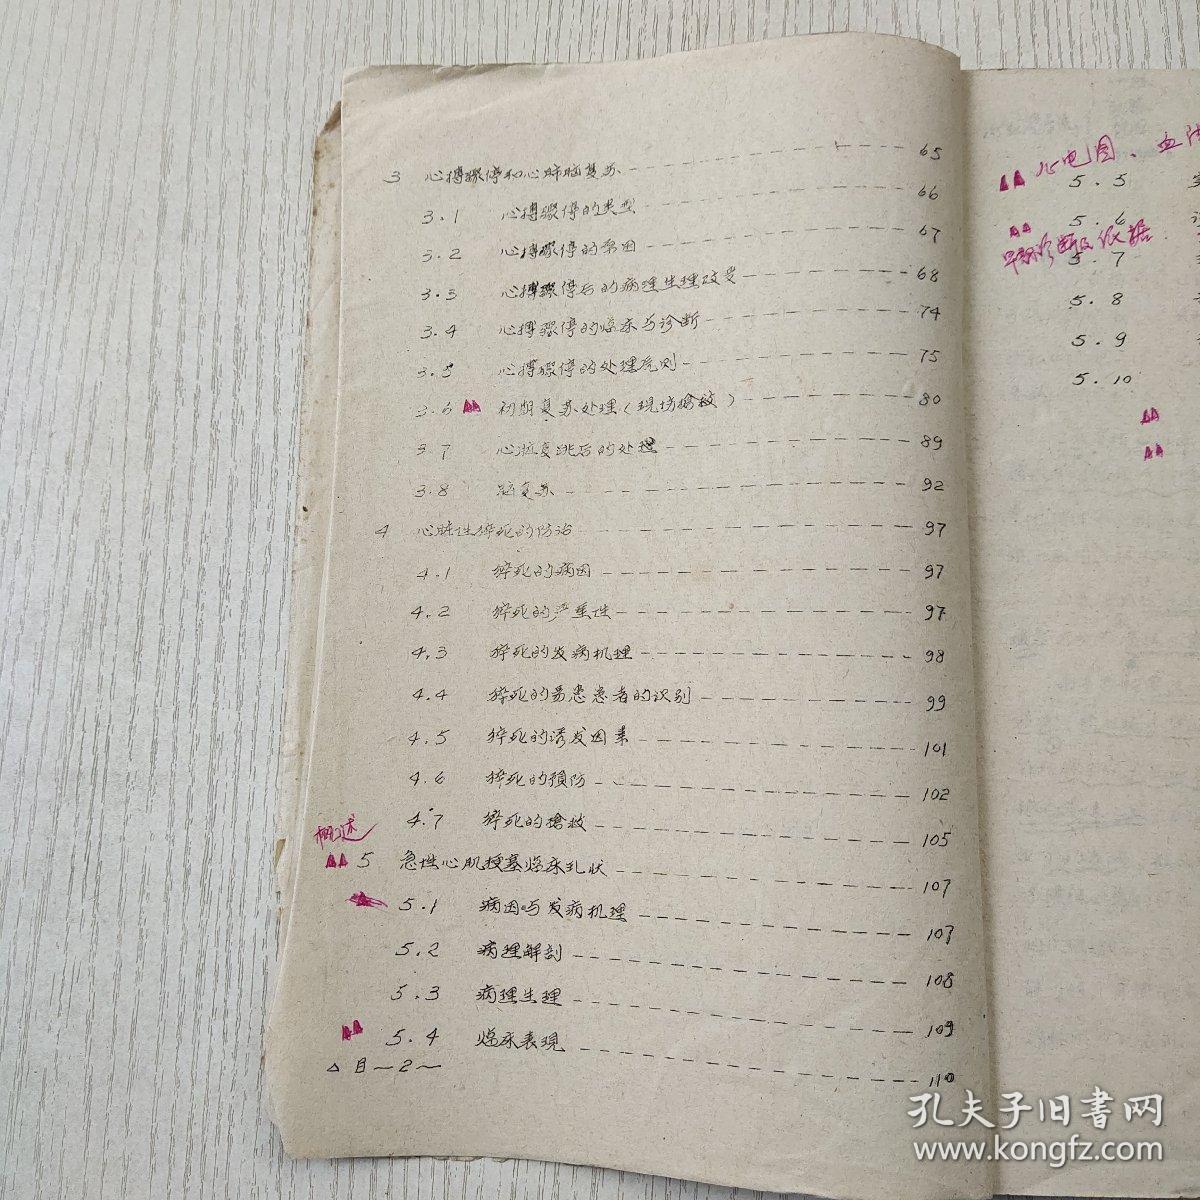 3 心搏骤停和心肺脑复苏 65
3.1 心搏骤停的类型 66
3.2 心搏骤停的原因 67
3.3 心搏骤停后的病理生理改变 68
3.4 心搏骤停的临床与诊断 74
3.5 心搏骤停的处理原则 75
3.6 初期复苏处理(现场搶救) 80
3.7 心脏复跳后的处理 89
3.8 脑复苏 92
4 心脏性猝死的防治 97
4.1 猝死的病因 97
4.2 猝死的严重性 97
4.3 猝死的发病机理 98
4.4 猝死的易患患者的识别 99
4.5 猝死的诱发因素 101
4.6 猝死的預防 102
4.7 猝死的搶救 105
概述
5 急性心肌梗塞临床 107
5.1 病因与发病机理 107
5.2 病理解剖 108
5.3 病理生理 109
5.4 临床表现 110
△目—2—
心电图、血
5.5
5.6
早期诊断及依据
5.7
5.8
5.9
5.10
孔夫子旧书网
www.kongfz.com